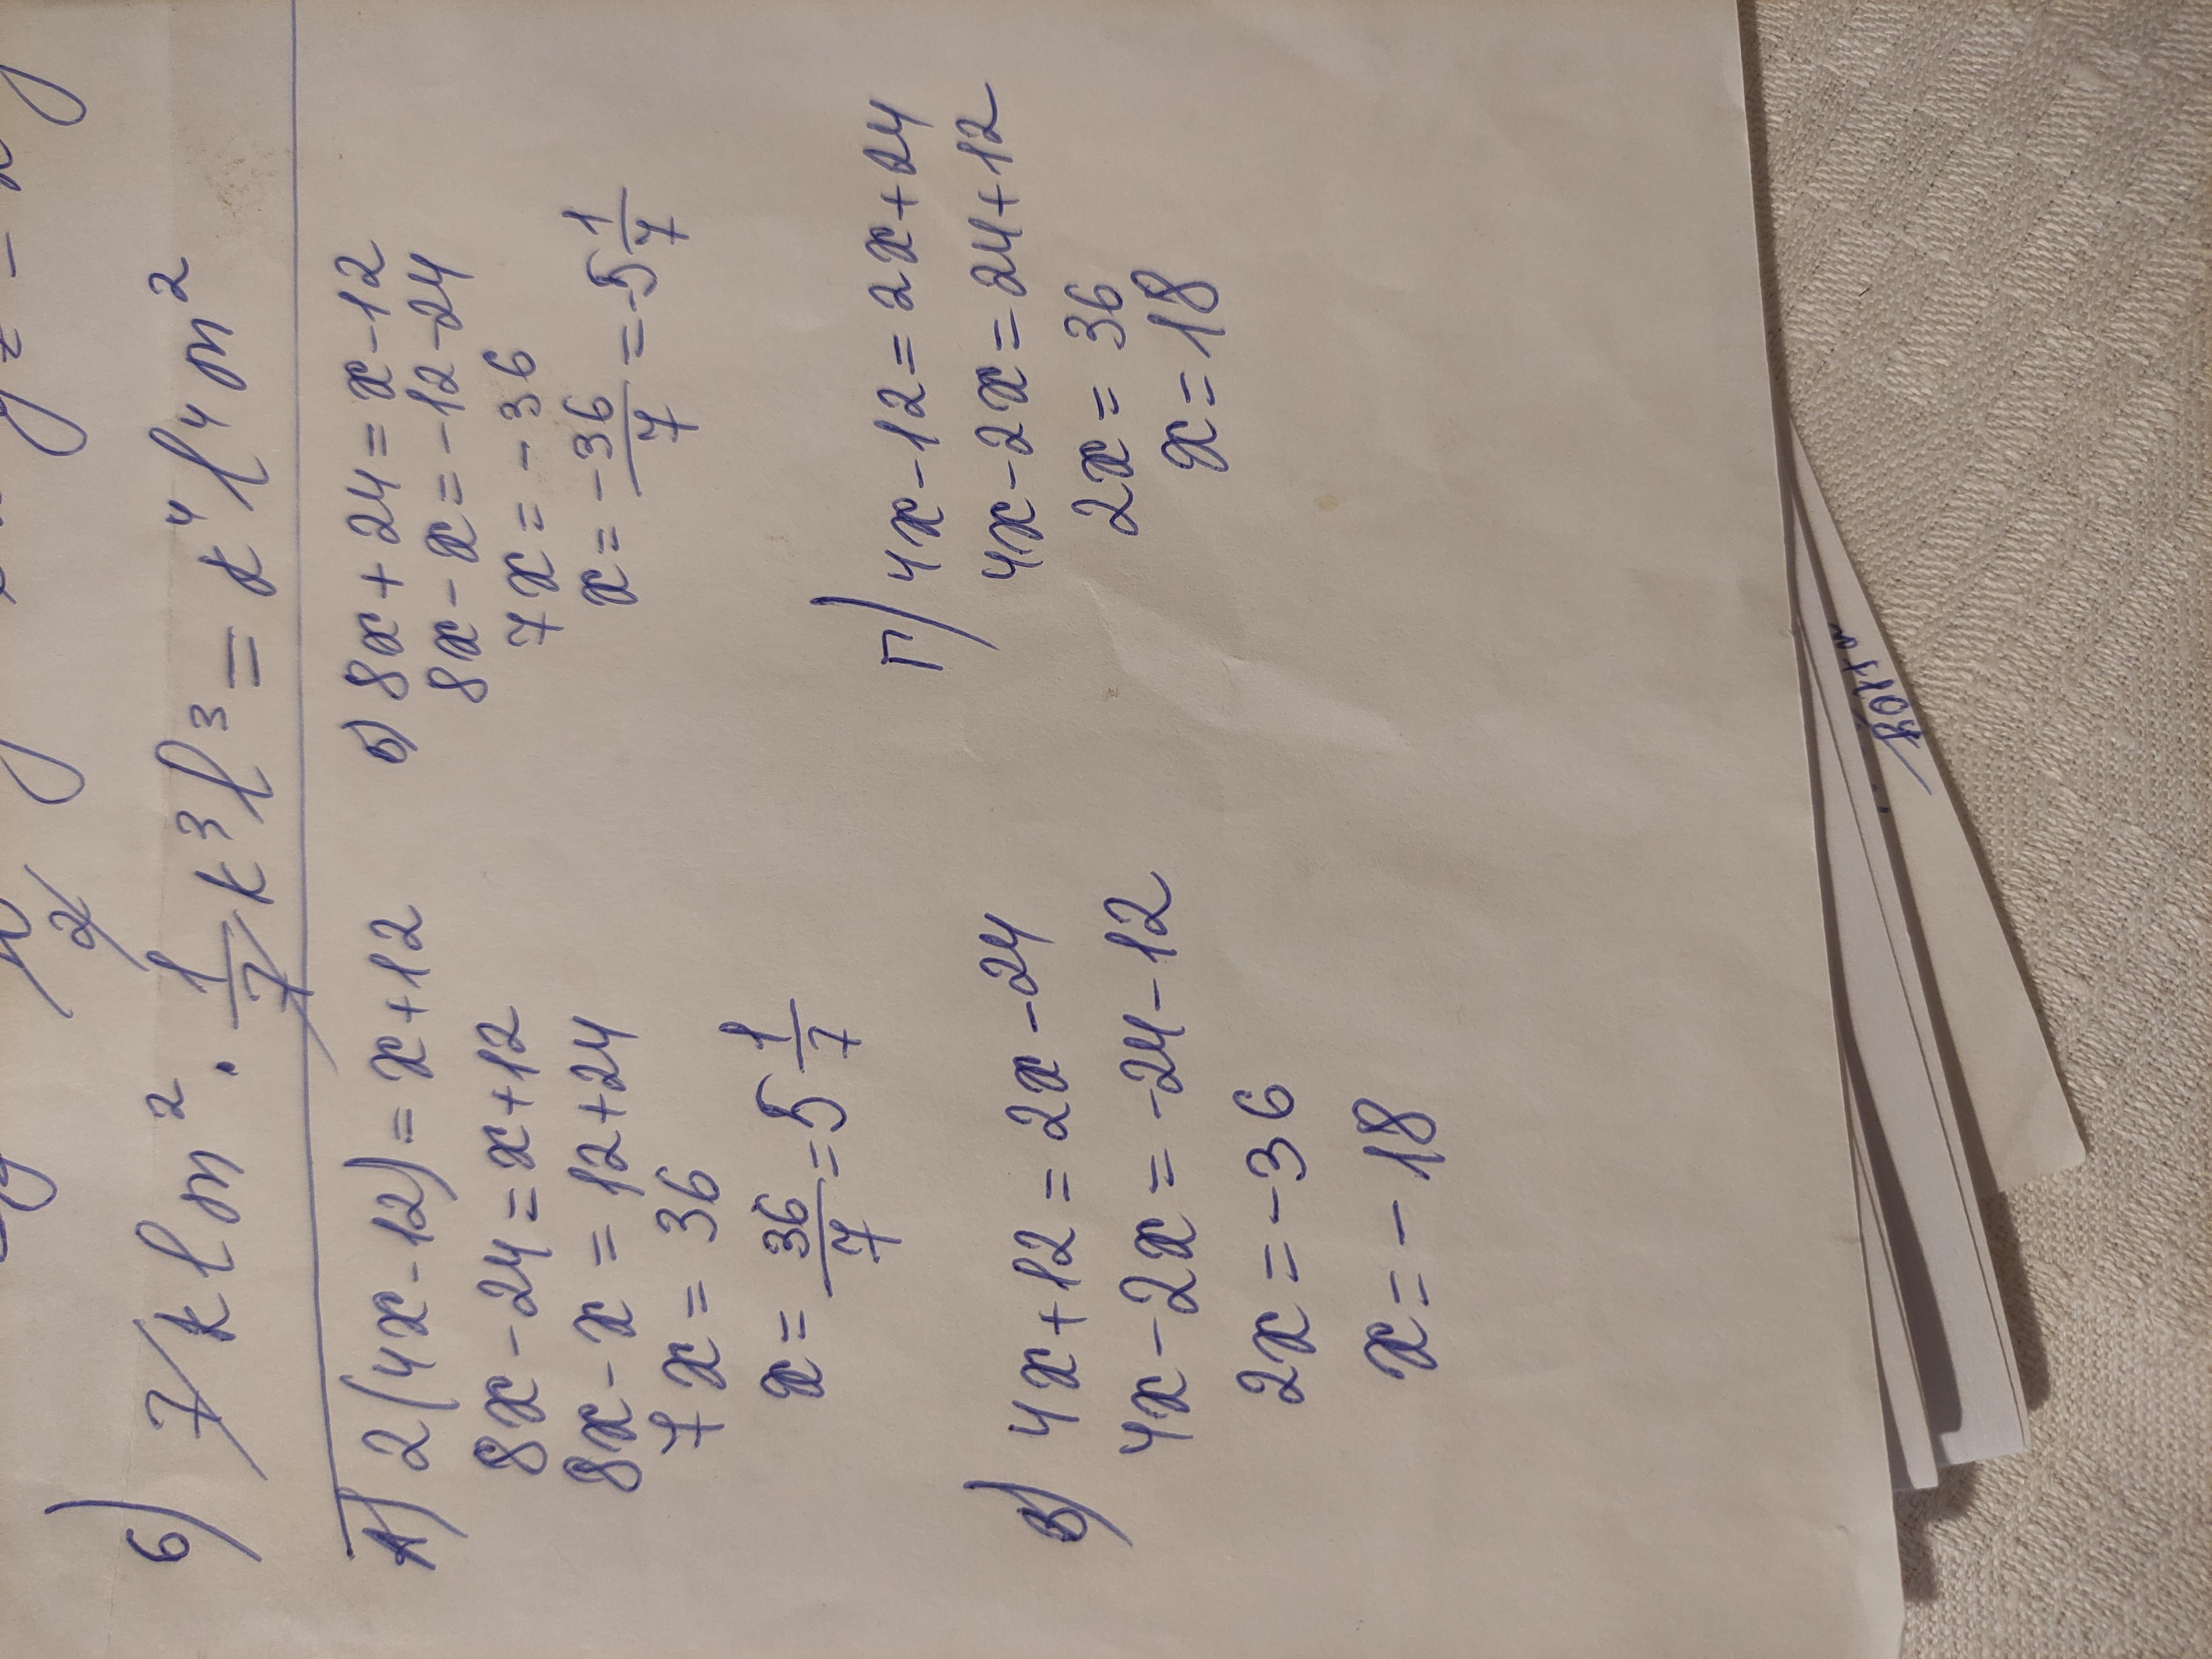 б) 7klm² · 1/7 k³l³ = k⁴l⁴m²
А) 2(4x-12)=x+12
8x-24=x+12
8x-x=12+24
7x=36
x=36/7=5 1/7
б) 8x+24=x-12
8x-x=-12-24
7x=-36
x=-36/7=-5 1/7
В) 4x+12=2x-24
4x-2x=-24-12
2x=-36
x=-18
Г) 4x-12=2x+24
4x-2x=24+12
2x=36
x=18